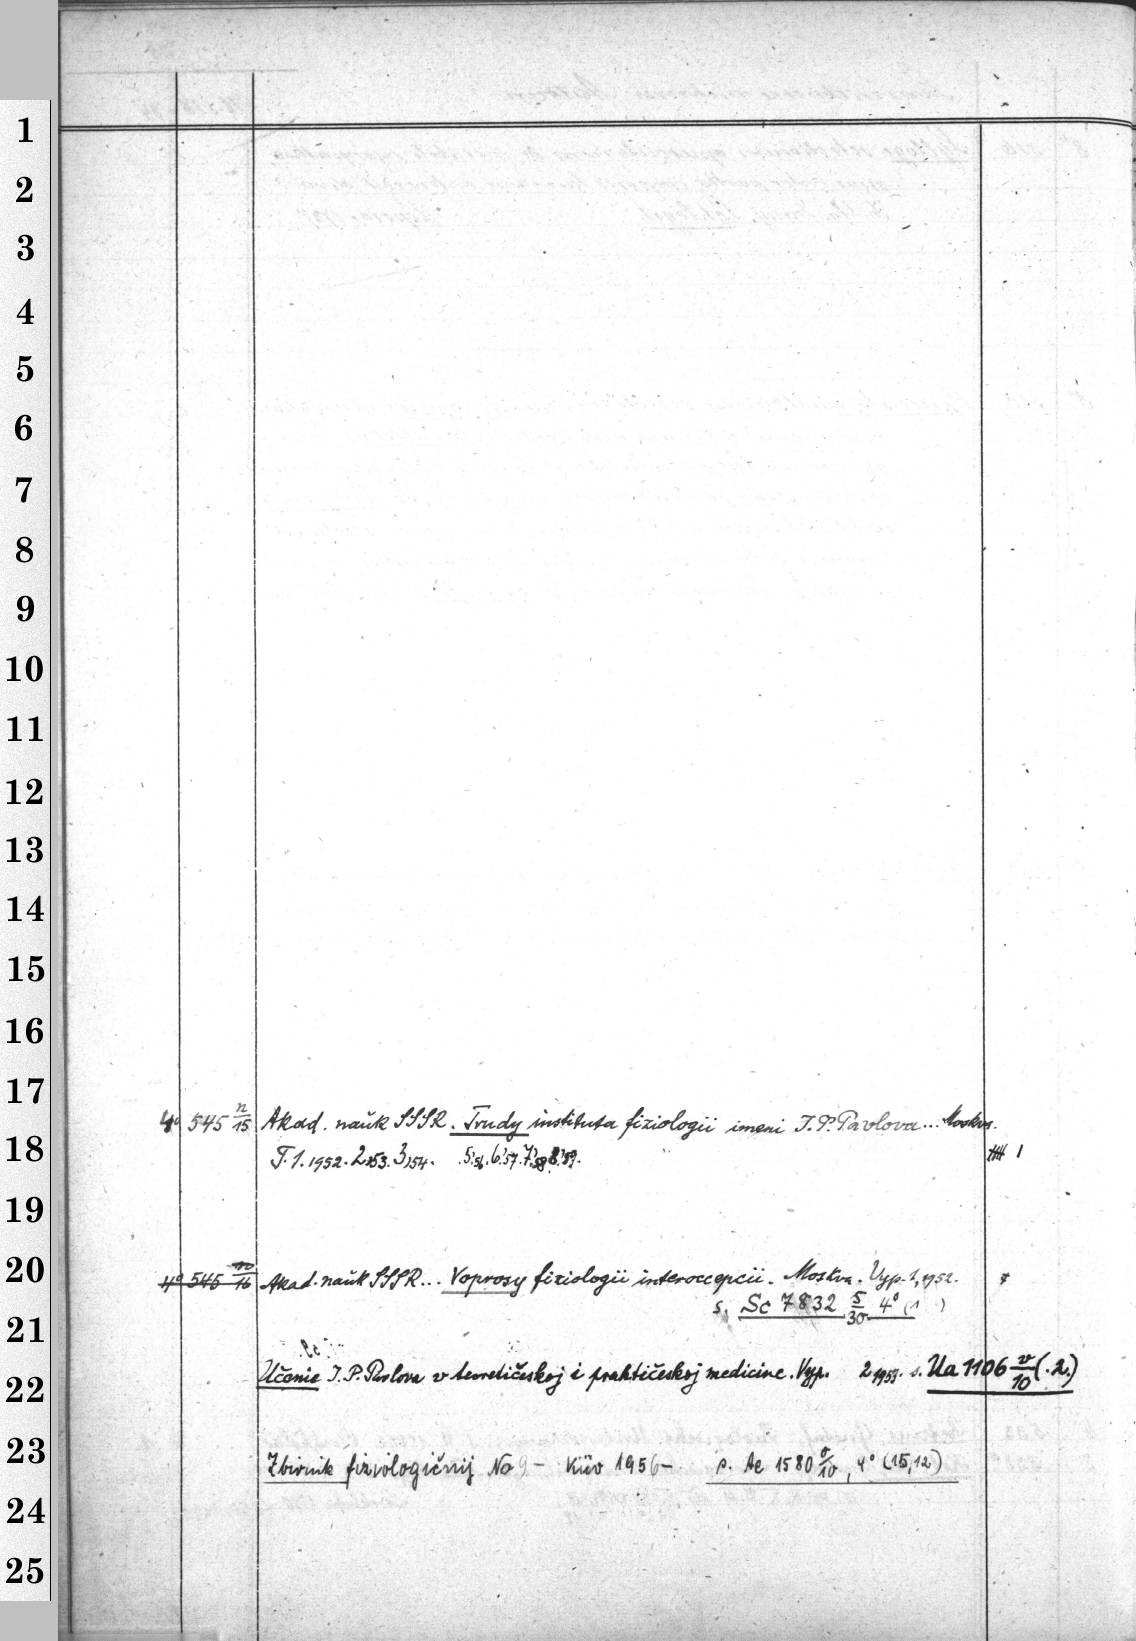 1
2
3
4
5
6
7
8
9
10
11
12
13
14
15
16
17
4° 545 n/15 Akad. nauk SSSR. Trudy instituta fiziologii imeni I. P. Pavlova... Moskva.
18
T. 1. 1952. 2,1953. 3,1954. 5,'56. 6,'57. 7,'58. 8,'59.
19
20
4° 545 /16 Akad. nauk SSSR... Voprosy fiziologii interoccepcii. Moskva. Vyp. 1, 1952.
s. Sc 7832 5/30 4° (1 )
21
22
Učenie I. P. Pavlova v teoretičeskoj i praktičeskoj medicine. Vyp. 2 1953. s. Ua 1106 v/10 (.2.)
23
Zbirnik fiziologičnij No 9 - Kiiv 1956 - s. Ac 1580 o/10, 4° (15,12)
24
25